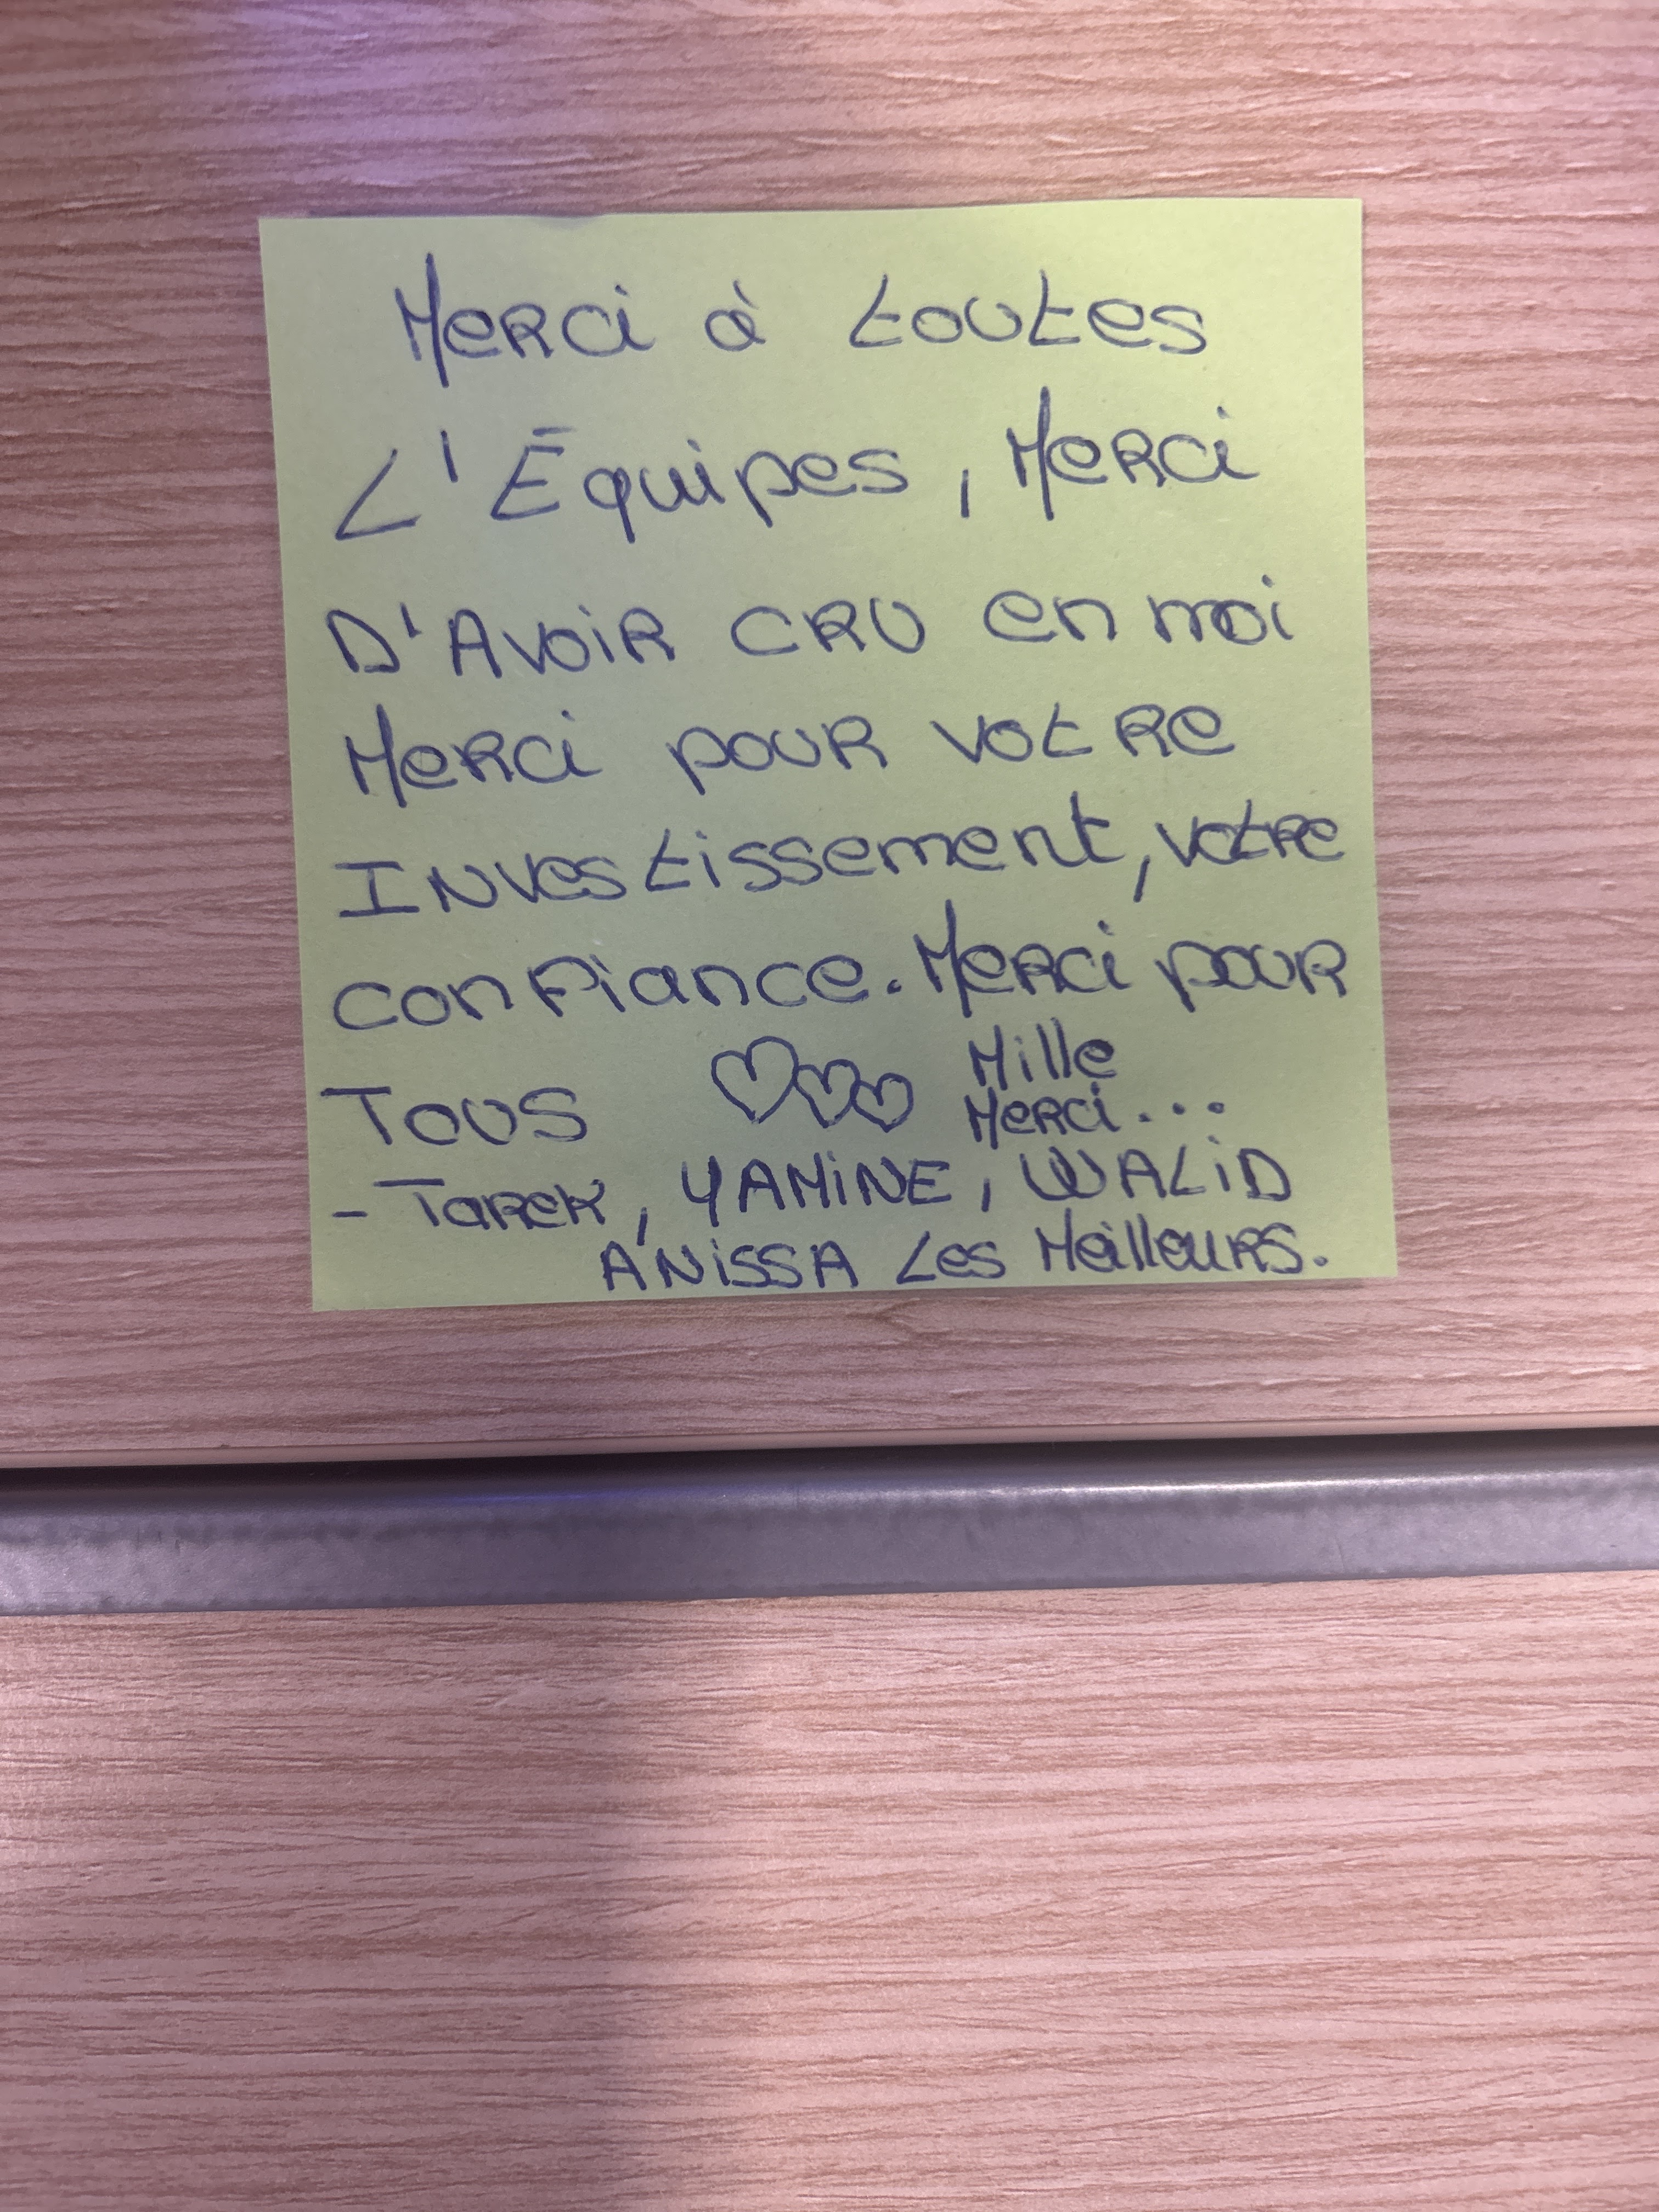 Merci à toutes
L'Équipes, Merci
D'AVOIR CRU en moi
Merci pour votre
Investissement, votre
confiance. Merci pour
Tous Mille
Merci...
- Tarek, YAMINE, WALID
ANISSA Les Meilleurs.